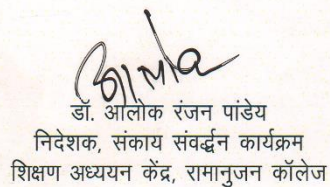 आलोक
डॉ. आलोक रंजन पांडेय
निदेशक, संकाय संवर्द्धन कार्यक्रम
शिक्षण अध्ययन केंद्र, रामानुजन कॉलेज